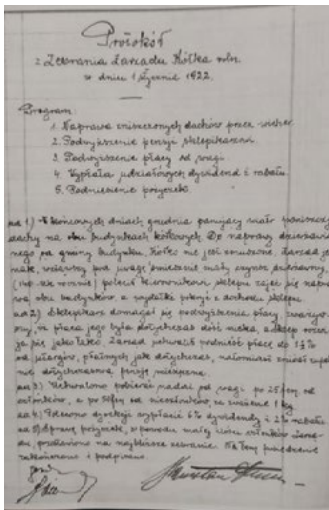 Protokół
z Zebrania Zarządu Kółka roln.
w dniu 1 stycznia 1922.
Program:
1. Naprawa zniszczonych dachów przez wicher.
2. Podwyższenie pensji sklepikarzom.
3. Podwyższenie płacy od wagi.
4. Wypłata udziałowych dywidend i rabatu.
5. Podniesienie pożyczek.
ad 1) W końcowych dniach grudnia panujący wiatr poniszczył
dachy na obu budynkach kółkowych. Do naprawy dzierżawio
nego od gminy budynku, Kółko nie jest zmuszone, Zarząd je
dnak, wziąwszy pod uwagę śmiesznie mały czynsz dzierżawny,
(140 rocznie) polecił kierownikom sklepu zająć się napra
wą obu budynków, a wydatki pokryć z dochodu sklepu.
ad 2) Sklepikarz domagał się podwyższenia płacy, uważyw
szy, że płaca jego była dotychczas dość niska, a sklep rozwi
ja się jako tako, Zarząd uchwalił podnieść płacę do 1½%
od targów, płatnych jak dotychczas, natomiast znieść zupeł
nie dotychczasową pensję miesięczną.
ad 3) Uchwalono pobierać nadal od wagi po 25 fen od
członków, a po 50 fen od nieczłonków, za ważenie 1 kg.
ad 4) Polecono dyrekcji wypłacić 6% dywidendy i 2% rabatu.
ad 5) Sprawę pożyczek, z powodu małej ilości członków Zarzą
du, przełożono na najbliższe zebranie. Na tem posiedzenie
zakończono i podpisano.